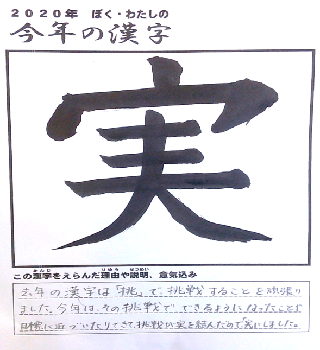 2020年 ぼく・わたしの
今年の漢字
実
この漢字をえらんだ理由や説明、意気込み
去年の漢字は「挑」で、挑戦することを頑張り
ました。今年は、その挑戦で、できるようになったことが
目標に近づいたりできて、挑戦が実を結んだので「実」にしました。